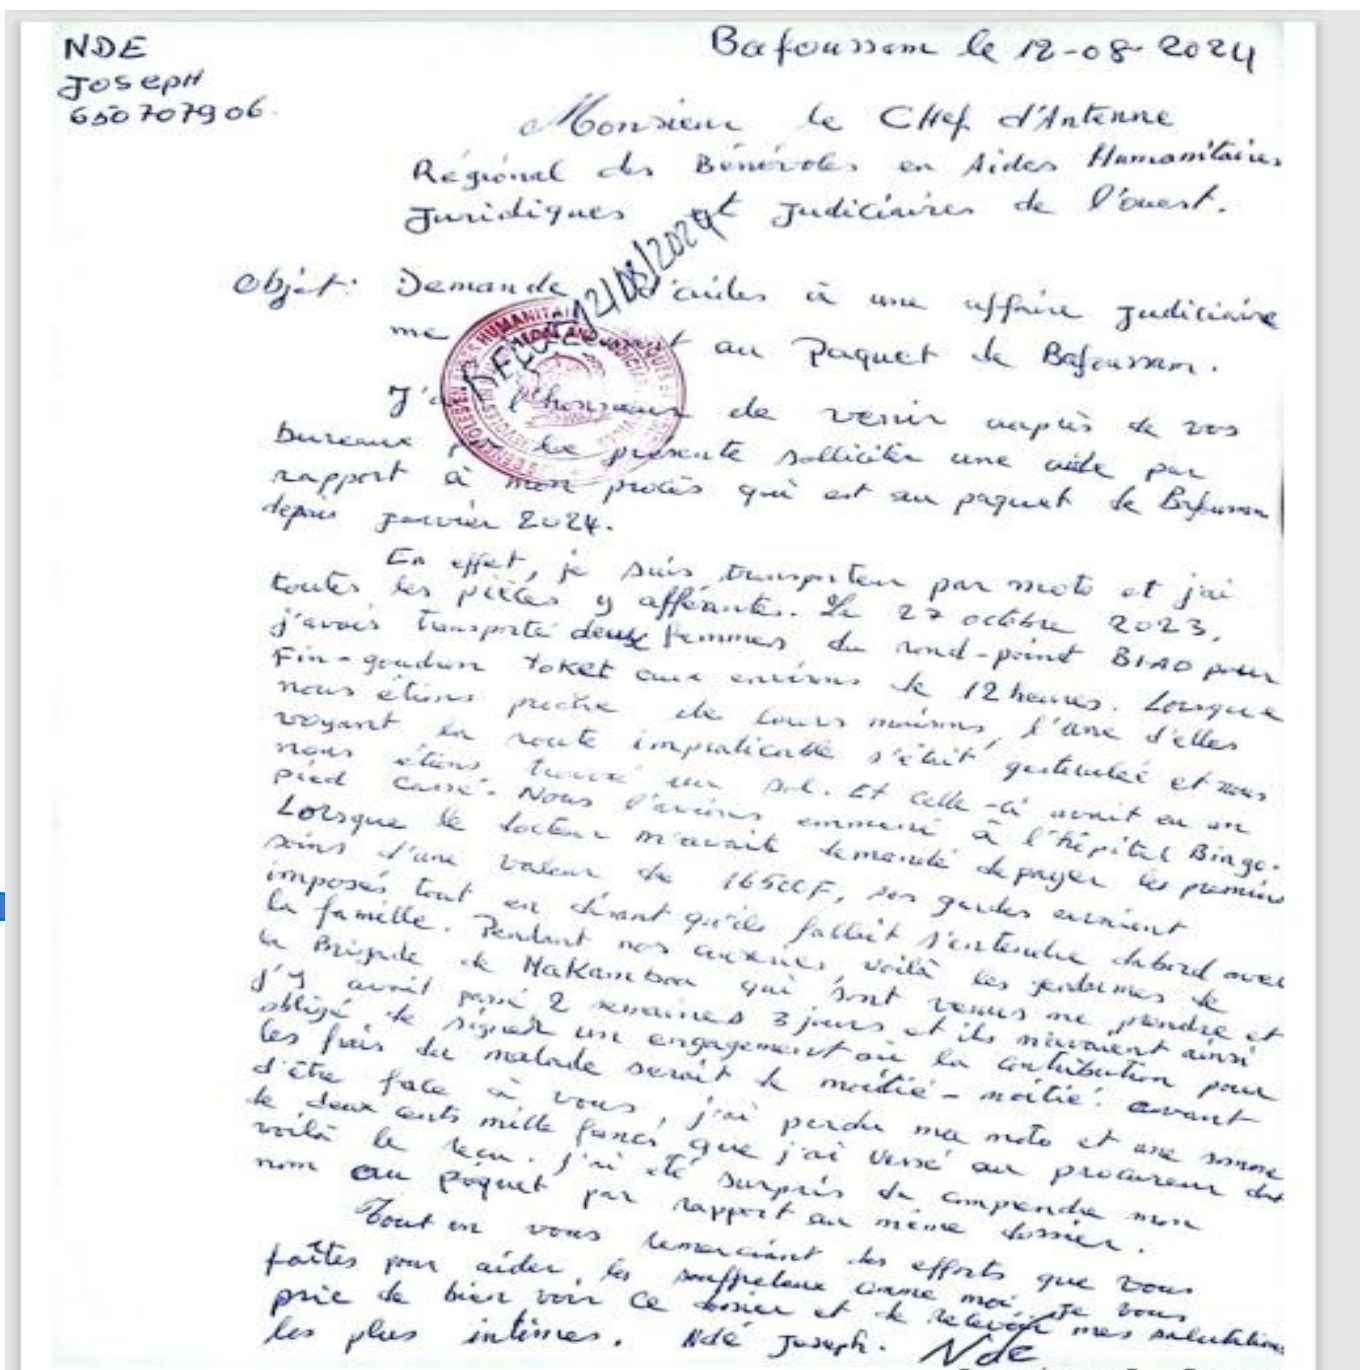 NDE
Joseph
650707906.
Bafoussam le 12-08-2024
Monsieur le Chef d'Antenne
Régional des Bénévoles en Aides Humanitaires
Juridiques et Judiciaires de l'ouest.
Objet: Demande d'aides à une affaire judiciaire
me au Paquet de Bafoussam.
REÇU LE 12/08/2024
J'ai l'honneur de venir auprès de vos
bureaux par la présente solliciter une aide par
rapport à mon procès qui est au paquet de Bafoussam
depuis janvier 2024.
En effet, je suis transporteur par moto et j'ai
toutes les pièces y afférantes. Le 27 octobre 2023,
j'avais transporté deux femmes du rond-point BIAO pour
Fin-goudron Toket aux environs de 12 heures. Lorsque
nous étions proche de leurs maisons, l'une d'elles
voyant la route impraticable s'était gesticulée et nous
nous étions trouvé au sol. Et celle-ci avait eu un
pied cassé. Nous l'avions emmené à l'hôpital Bingo.
Lorsque le docteur m'avait demandé de payer les premiers
soins d'une valeur de 16500F, ses gardes avaient
imposés tout en disant qu'ils fallait s'entendre dabord avec
la famille. Pendant nos causeries, voilà les gendarmes de
la Brigade de Makambou qui sont venus me prendre et
j'y avait passé 2 semaines 3 jours et ils m'avaient ainsi
obligé de signer un engagement où la contribution pour
les frais du malade serait de moitié-moitié. avant
d'être face à vous, j'ai perdu ma moto et une somme
de deux cents mille francs que j'ai versé au procureur dont
voilà le reçu. J'ai été surpris de comprendre mon
nom au paquet par rapport au même dossier.
Tout en vous remerciant des efforts que vous
faîtes pour aider les souffreteux comme moi, je vous
prie de bien voir ce dossier et de recevoir mes salutations
les plus intimes. Ndé Joseph. Nde